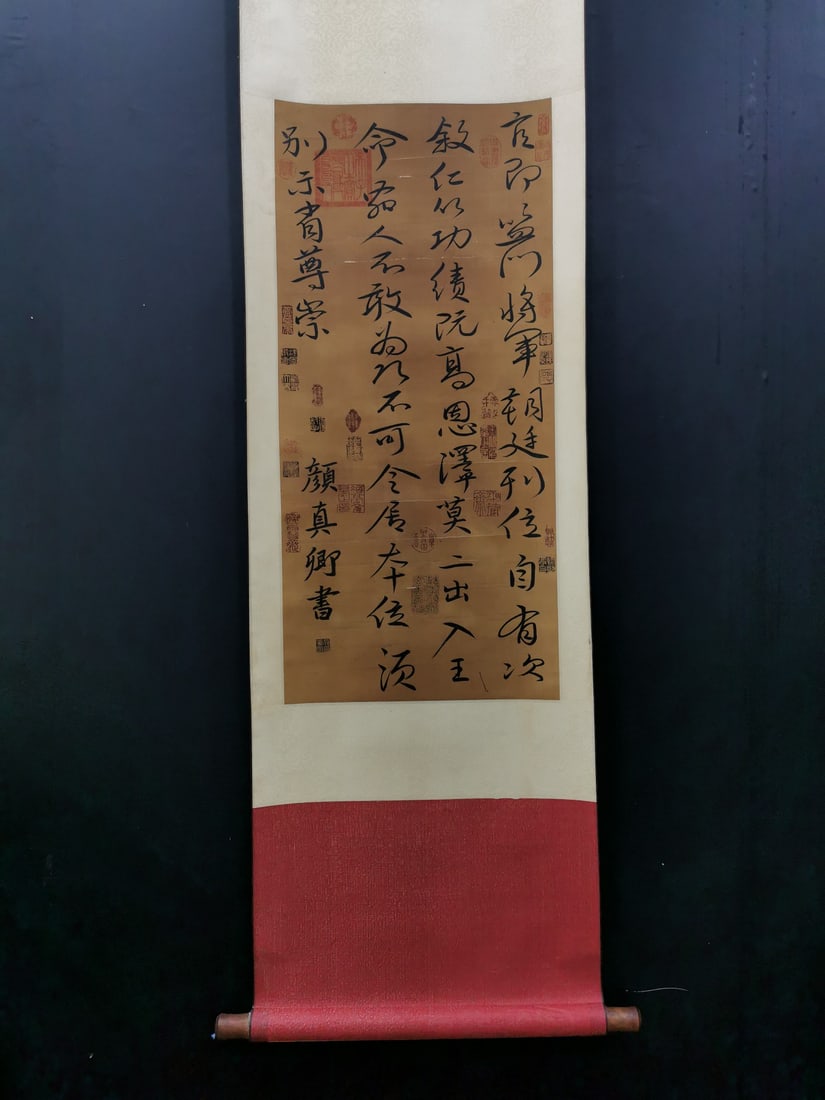 官即監門將軍朝廷列位自有次
叙仁以功績既高恩澤莫二出入王
命眾人不敢為比不可令居本位須
別示有尊崇
顏真卿書